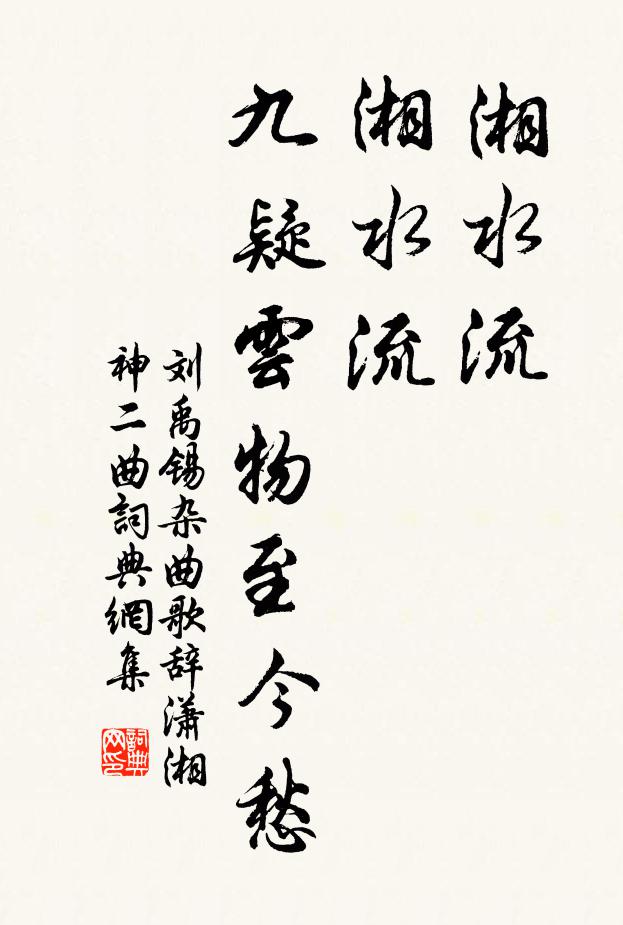 湘水流
湘水流
九疑雲物至今愁
刘禹锡杂曲歌辞潇湘
神二曲詞典網集
詞典
网印